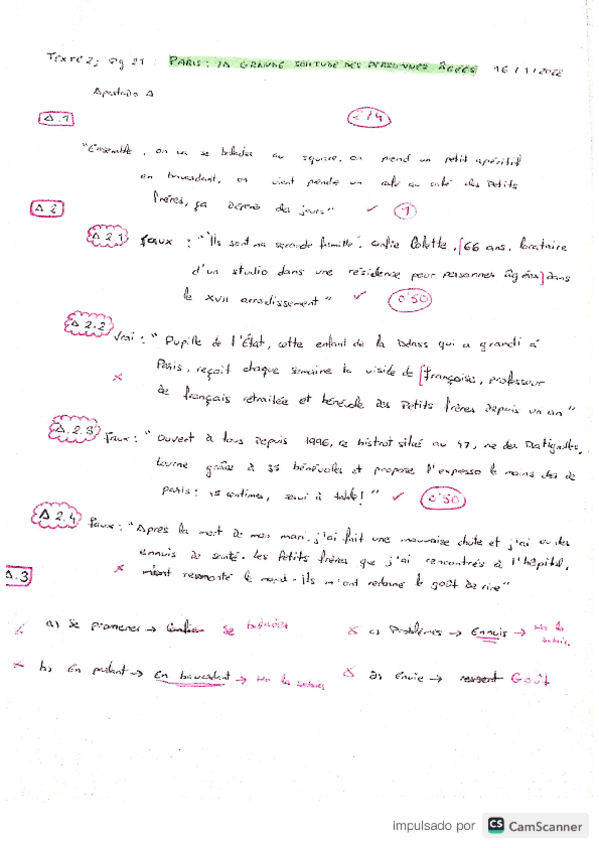 Texte 2; pg 21 : PARIS: LA GRANDE SOLITUDE DES PERSONNES ÂGÉES 16/1/2022
Apartado A
A.1 2/4
"Ensemble, on va se balader au square, on prend un petit apéritif
en bavardant, on vient prendre un café au café des Petits
frères, ça dépend des jours" ✓ 1
A 2
A 2.1 faux : "Ils sont ma seconde famille", confie Colette, [66 ans, locataire
d'un studio dans une résidence pour personnes âgées] dans
le XVII arrondissement" ✓ 0'50
A 2.2 vrai : "Pupille de l'État, cette enfant de la Ddass qui a grandi à
Paris, reçoit chaque semaine la visite de [françoise, professeur
de français retraitée et bénévole des Petits frères depuis un an"
A.2.3 faux : "Ouvert à tous depuis 1996, ce bistrot situé au 47, rue des Batignolles,
tourne grâce à 35 bénévoles et propose l'expresso le moins cher de
paris: 45 centimes, servi à table!" ✓ 0'50
A 2.4 faux : "Après la mort de mon mari, j'ai fait une mauvaise chute et j'ai eu des
ennuis de santé. Les Petits frères que j'ai rencontrés à l'hôpital,
m'ont remonté le moral. Ils m'ont redonné le goût de rire"
A.3
a) Se promener → Se balader
x c) Problèmes → Ennuis →
x b) En parlant → En bavardant →
x d) Envie → Goût
impulsado por CS CamScanner